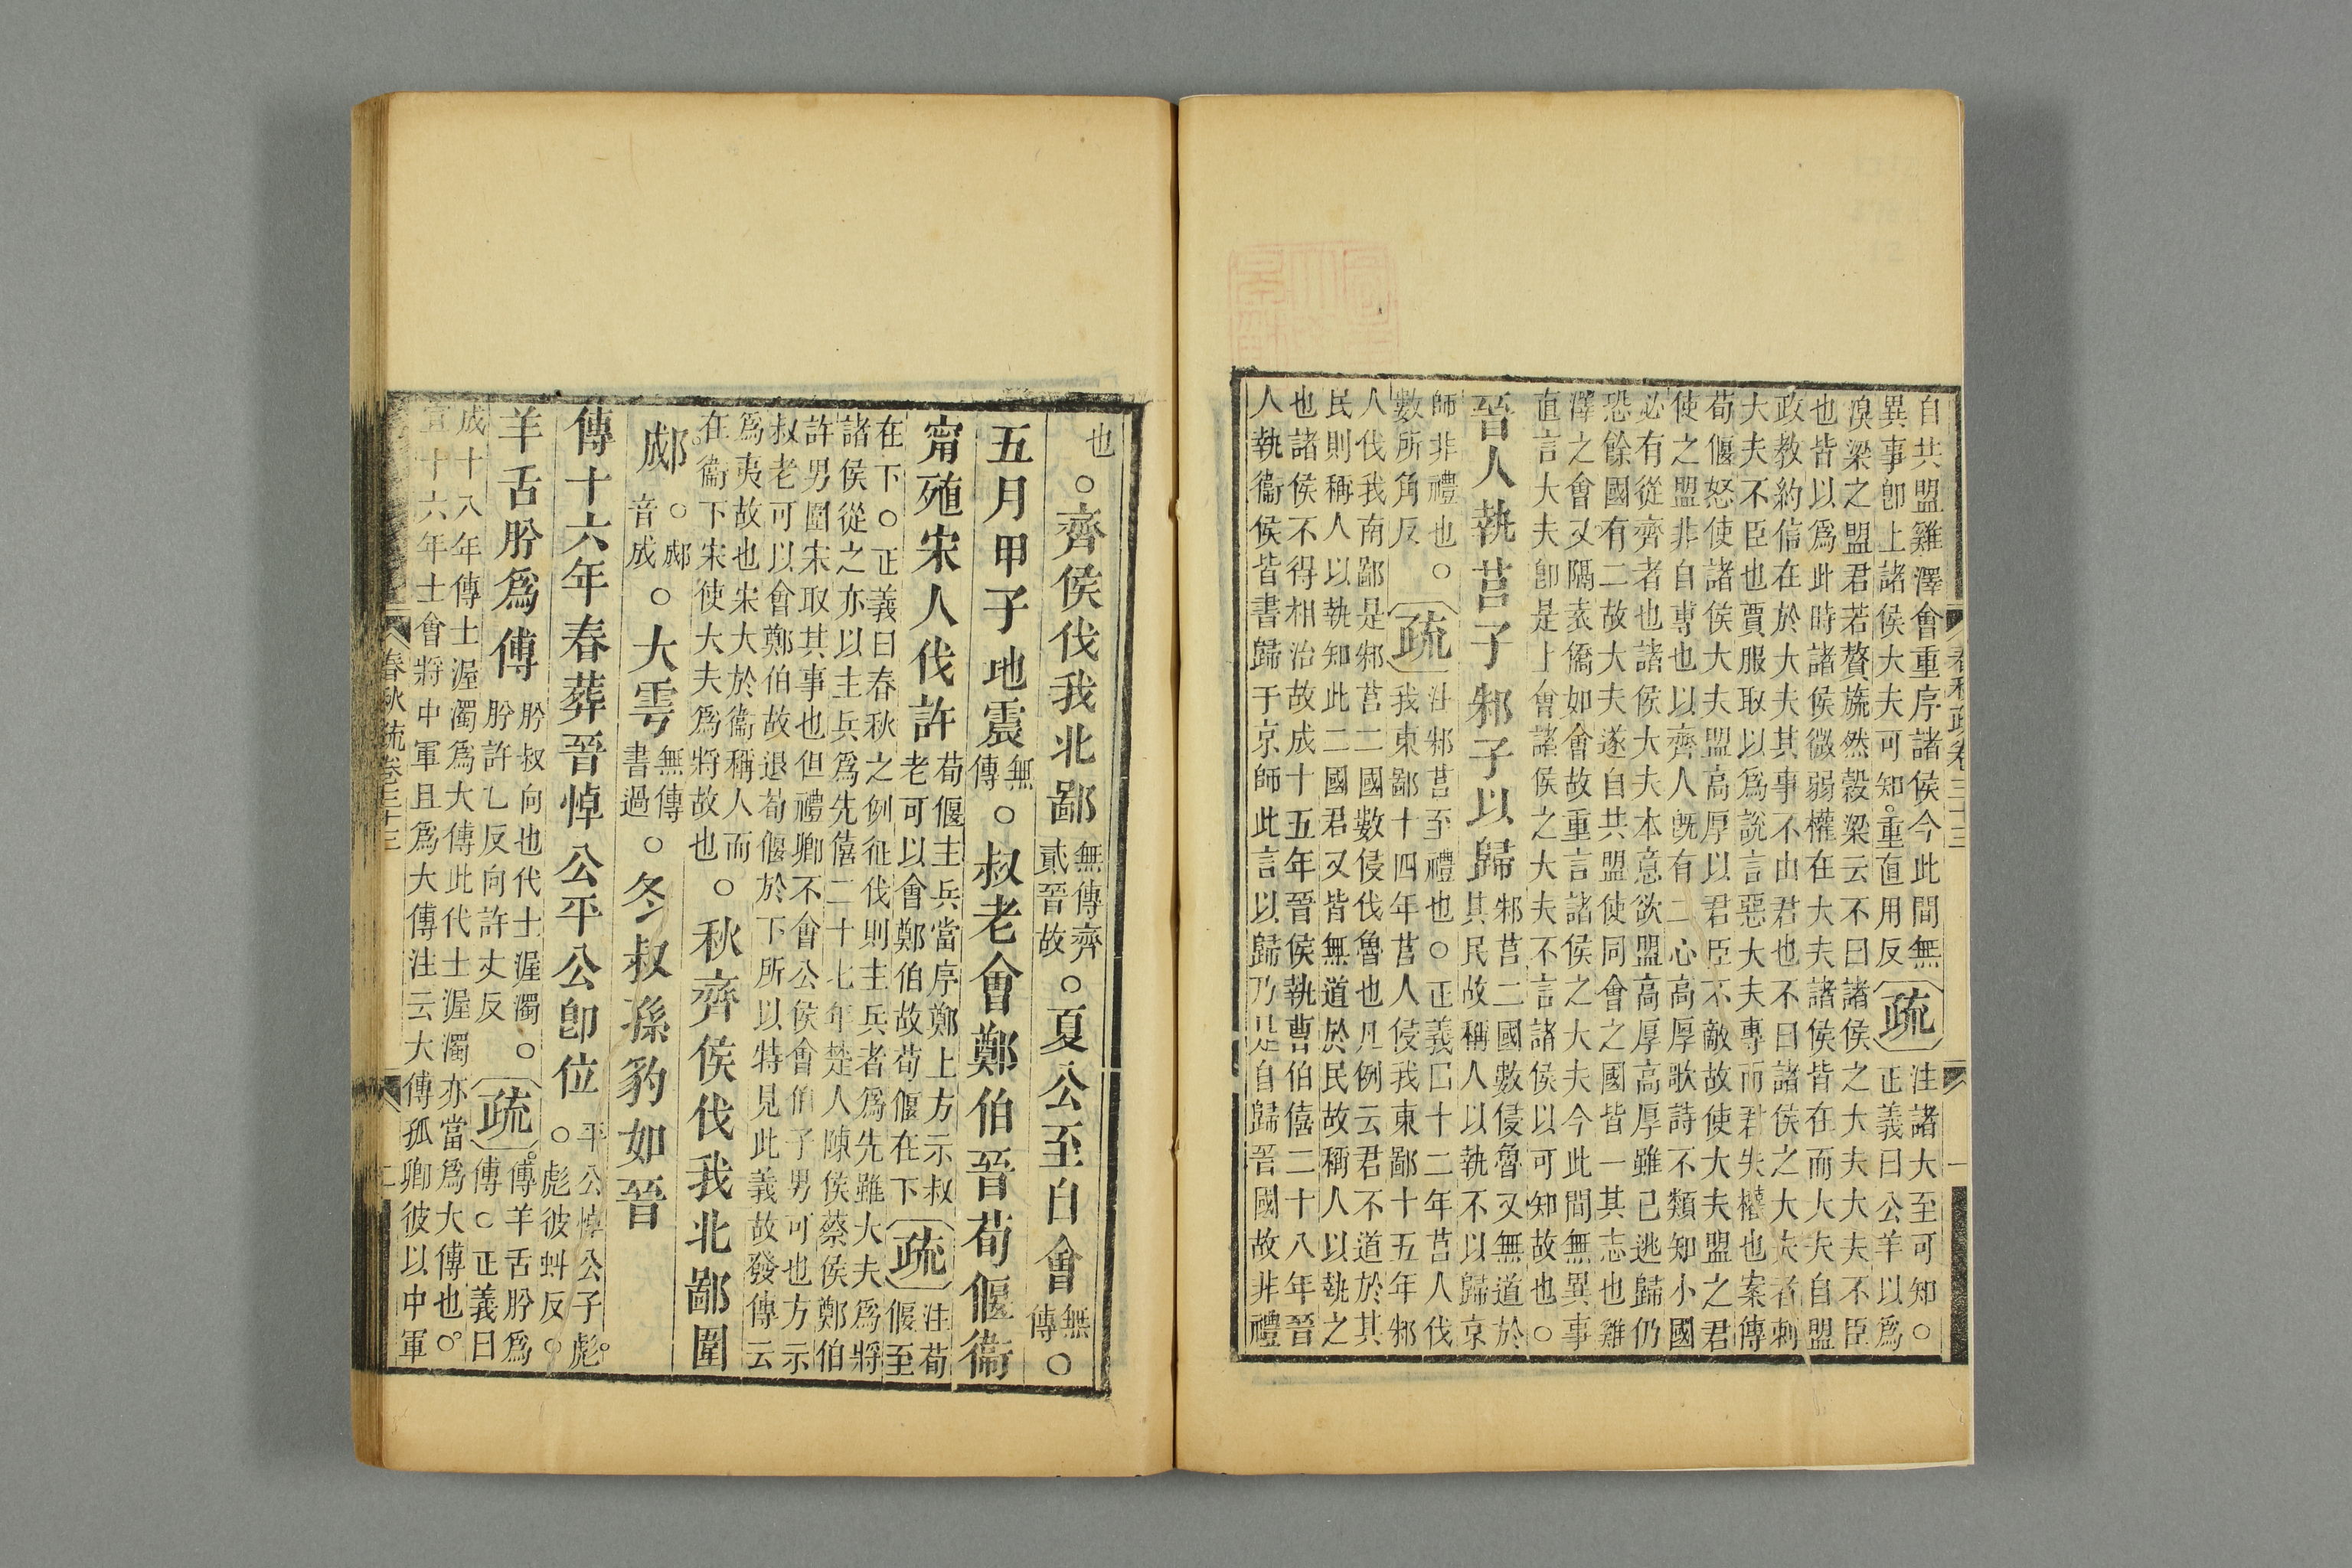 春秋疏卷三十三
一
自共盟雞澤會重序諸侯今此間無
異事卽上諸侯大夫可知。重直用反
疏
注諸大至可知○
正義曰公羊以爲
湨梁之盟君若贅旒然穀梁云不曰諸侯之大夫大夫不臣
也皆以爲此時諸侯微弱權在大夫諸侯皆在而大夫自盟
政教約信在於大夫其事不由君也不曰諸侯之大夫者刺
大夫不臣也賈服取以爲說言惡大夫專而君失權也案傳
荀偃怒使諸侯大夫盟高厚以君臣不敵故使大夫盟之君
使之盟非自專也以齊人旣有二心高厚歌詩不類知小國
必有從齊者也諸侯大夫本意欲盟高厚高厚雖已逃歸仍
恐餘國有二故大夫遂自共盟使同會之國皆一其志也雞
澤之會又隔袁僑如會故重言諸侯之大夫今此間無異事
直言大夫卽是上會諸侯之大夫不言諸侯以可知故也○
晉人執莒子邾子以歸
邾莒二國數侵魯又無道於
其民故稱人以執不以歸京
師非禮也○
數所角反
疏
注邾莒至禮也○正義曰十二年莒人伐
我東鄙十四年莒人侵我東鄙十五年邾
人伐我南鄙是邾莒二國數侵伐魯也凡例云君不道於其
民則稱人以執知此二國君又皆無道於民故稱人以執之
也諸侯不得相治故成十五年晉侯執曹伯僖二十八年晉
人執衞侯皆書歸于京師此言以歸乃是自歸晉國故非禮
也
○齊侯伐我北鄙
無傳齊
貳晉故
○夏公至自會
無
傳
○
五月甲子地震
無
傳
○叔老會鄭伯晉荀偃衞
甯殖宋人伐許
荀偃主兵當序鄭上方示叔
老可以會鄭伯故荀偃在下
疏
注荀
偃至
在下○正義曰春秋之例征伐則主兵者爲先雖大夫爲將
諸侯從之亦以主兵爲先僖二十七年楚人陳侯蔡侯鄭伯
許男圍宋取其事也但禮卿不會公侯會伯子男可也方示
叔老可以會鄭伯故退荀偃於下所以特見此義故發傳云
爲夷故也宋大於衞稱人而
在衞下宋使大夫爲將故也
○秋齊侯伐我北鄙圍
郕
○郕
音成
○大雩
無傳
書過
○冬叔孫豹如晉
傳十六年春葬晉悼公平公卽位
平公悼公子彪。
○彪彼虯反○
羊舌肸爲傅
肸叔向也代士渥濁○
肸許乙反向許丈反
疏
傳羊舌肸爲
傅○正義曰
成十八年傳士渥濁爲大傅此代士渥濁亦當爲大傅也。
宣十六年士會將中軍且爲大傅注云大傅孤卿彼以中軍
春秋疏卷三十三
二